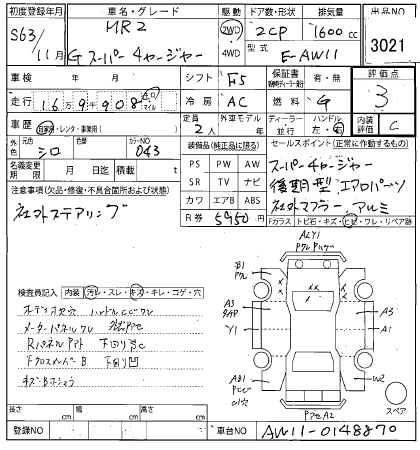 初度登録年月 車名・グレード 駆動 ドア数・形状 排気量 出品NO
S63/11月 MR2 2WD 2CP 1600cc 3021
Gスーパーチャージャー 4WD 型式 E-AW11
車検 年 月 シフト F5 保証書 有・無 ディーラー・整 評価点
走行 16万9千908 キロ マイル 冷房 AC 燃料 G 3
車歴 自家用・レンタ・事業用( ) 定員 2人 外車モデル 年 ディーラー 並行 ハンドル 左・右 内装 C
外色 元色 シロ 色替 カラーNO 043 装備品(純正品に限る) セールスポイント(正常に作動するもの)
名義変更期限 月 日迄 積載 t PS PW AW スーパーチャージャー
注意事項(欠品・修復・不具合箇所および状態) SR TV ナビ 後期型 エアロパーツ
社外ステアリング カワ エアB ABS 社外マフラー アルミ
R券 5950円 Fガラス トビ石・キズ・ヒビ・ワレ・リペア跡
A2Y1
B1
検査員記入 内装 汚レ・スレ・キズ・キレ・コゲ・穴
A3 A3
メーターパネルワレ Y1 A1
下回りSC
下回り凹
W2
AB1
スペア
A2
長さ cm 幅 cm 高さ cm
登録NO 車台NO AW11-0148870